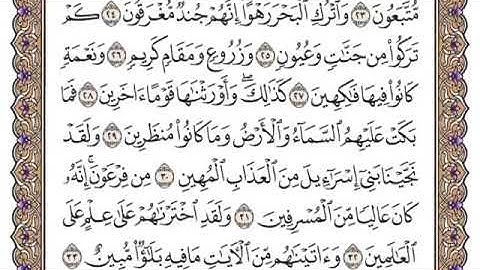 مُّتَّبَعُونَ ٢٣ وَٱتْرُكِ ٱلْبَحْرَ رَهْوًا ۖ إِنَّهُمْ جُندٌ مُّغْرَقُونَ ٢٤ كَمْ
تَرَكُوا۟ مِن جَنَّـٰتٍ وَعُيُونٍ ٢٥ وَزُرُوعٍ وَمَقَامٍ كَرِيمٍ ٢٦ وَنَعْمَةٍ
كَانُوا۟ فِيهَا فَـٰكِهِينَ ٢٧ كَذَٰلِكَ ۖ وَأَوْرَثْنَـٰهَا قَوْمًا ءَاخَرِينَ ٢٨ فَمَا
بَكَتْ عَلَيْهِمُ ٱلسَّمَآءُ وَٱلْأَرْضُ وَمَا كَانُوا۟ مُنظَرِينَ ٢٩ وَلَقَدْ
نَجَّيْنَا بَنِىٓ إِسْرَٰٓءِيلَ مِنَ ٱلْعَذَابِ ٱلْمُهِينِ ٣٠ مِن فِرْعَوْنَ ۚ إِنَّهُۥ
كَانَ عَالِيًا مِّنَ ٱلْمُسْرِفِينَ ٣١ وَلَقَدِ ٱخْتَرْنَـٰهُمْ عَلَىٰ عِلْمٍ عَلَى
ٱلْعَـٰلَمِينَ ٣٢ وَءَاتَيْنَـٰهُم مِّنَ ٱلْـَٔايَـٰتِ مَا فِيهِ بَلَـٰٓؤٌا۟ مُّبِينٌ ٣٣